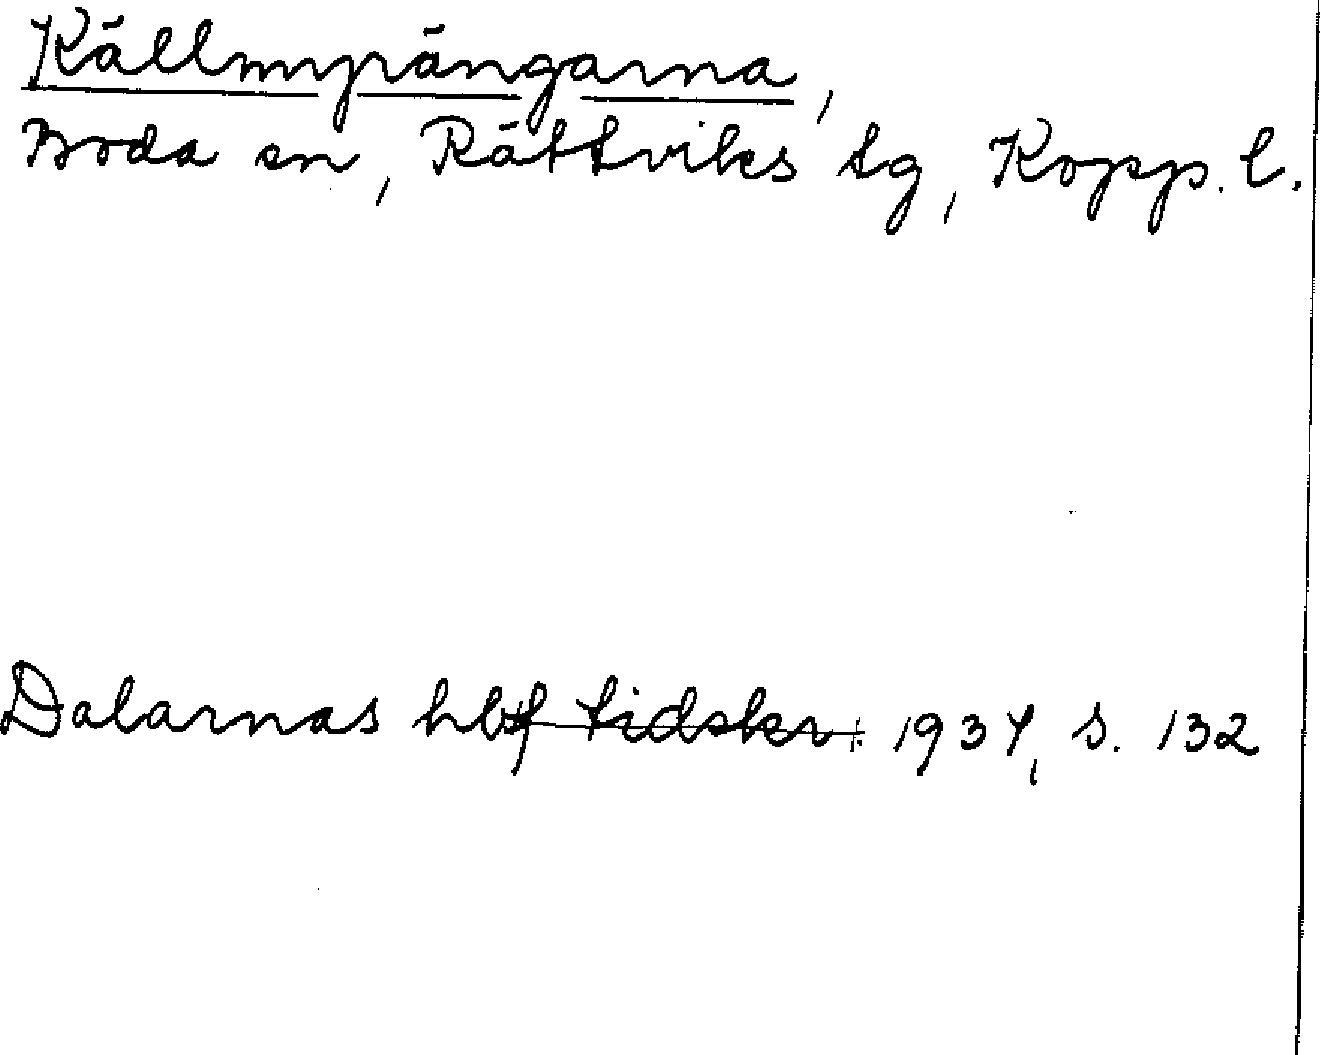 Källmyrängarna,
Boda sn, Rättviks tg, Kopp. l.
Dalarnas hbf tidskr. 1934, s. 132